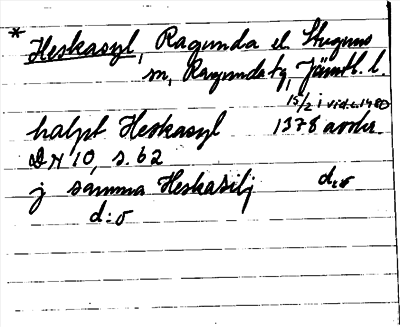 * Heskasyl, Ragunda el. Stuguns
sn, Ragunda tg, Jämtl. l.
15/2 i vid. c. 1480
halft Heskasyl 1378 avskr.
DN 10, s. 62
j samma Heskasilj d:o
d:o